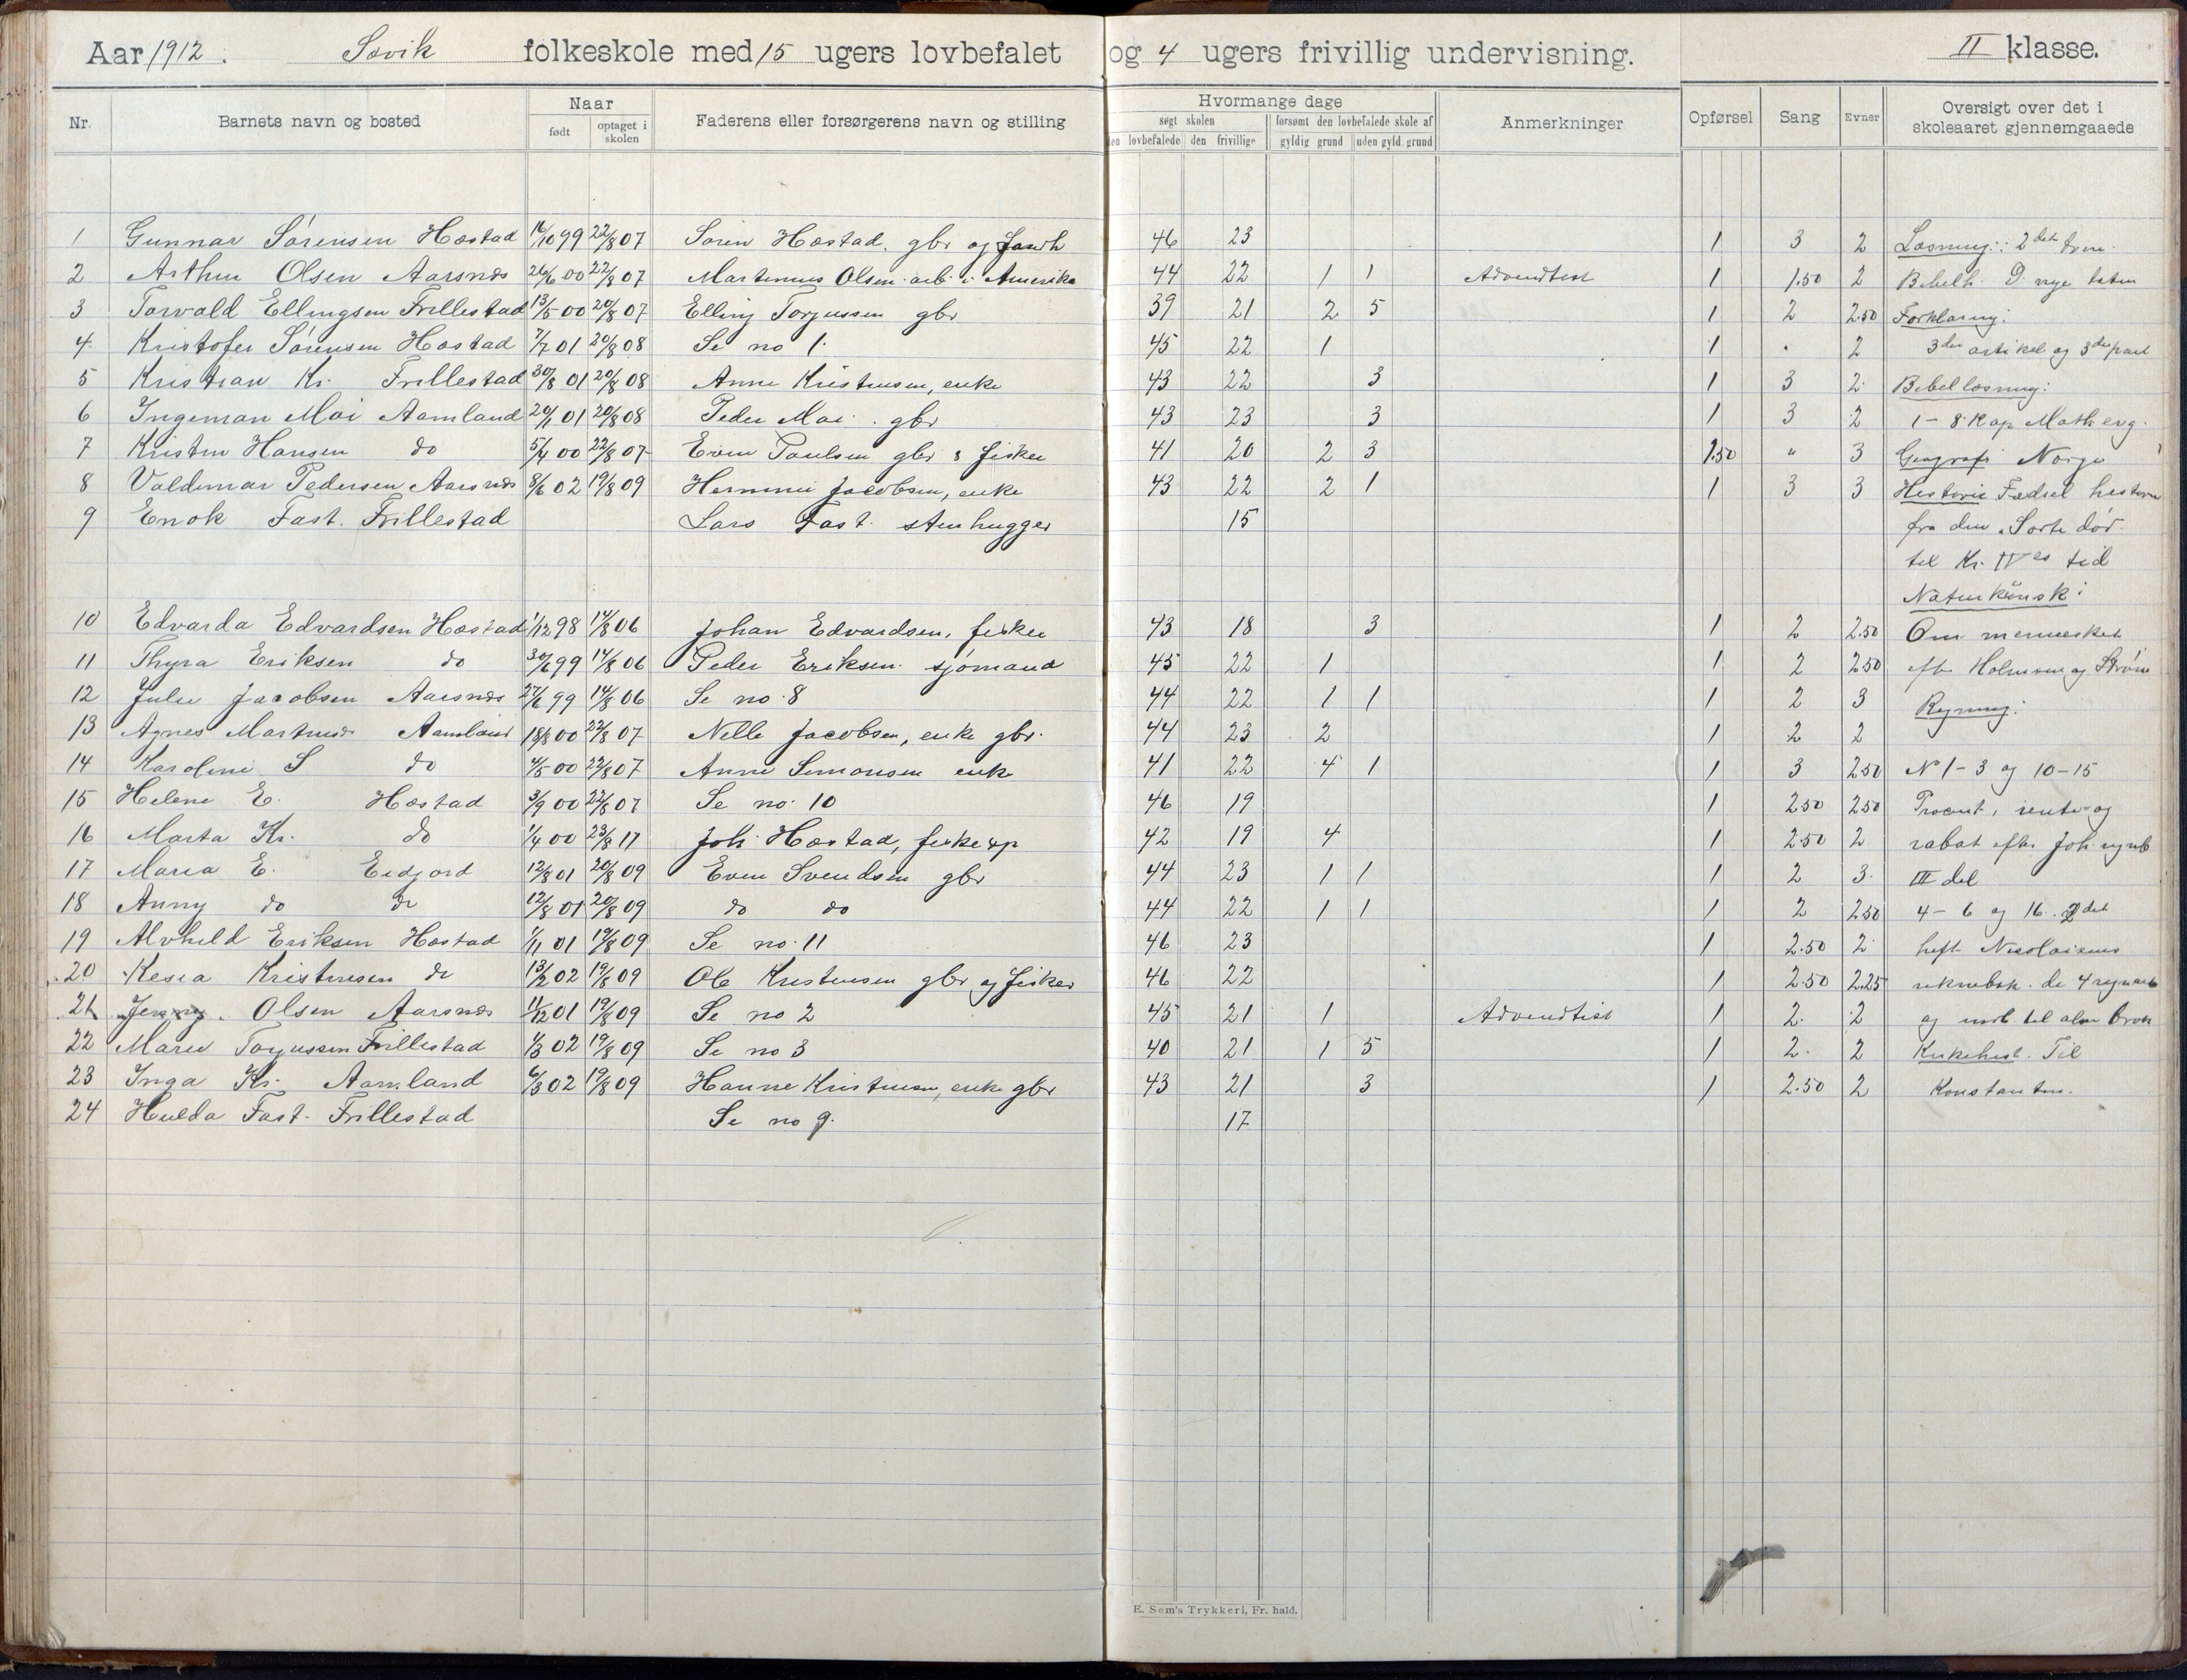 Aar 1912. Søvik folkeskole med 15 ugers lovbefalet og 4 ugers frivillig undervisning. II klasse.
Nr. Barnets navn og bosted Naar født optaget i skolen Faderens eller forsørgerens navn og stilling Hvormange dage søgt skolen den lovbefalede den frivillige forsømt den lovbefalede skole af gyldig grund uden gyld. grund Anmerkninger Opførsel Sang Evner Oversigt over det i skoleaaret gjennemgaaede
1 Gunnar Sørensen Hæstad 16/10 99 22/8 07 Søren Hæstad. gbr og 46 23 1 3 2 Læsning: 2det
2 Arthur Olsen Aarsnæs 26/6 00 22/8 07 Martinius Olsen arb. i Amerika 44 22 1 1 Advendtist 1 1.50 2 Bibelh. D. nye testm
3 Torvald Ellingsen Frillestad 13/5 00 20/8 07 Elling Torjussen gbr 39 21 2 5 1 2 2.50 Forklaring:
4 Kristofer Sørensen Hæstad 7/7 01 20/8 08 Se no 1. 45 22 1 1 2 3die artikel og 3die part
5 Kristian Kr. Frillestad 30/8 01 20/8 08 Anne Kristensen, enke 43 22 3 1 3 2 Bibellæsning:
6 Ingeman Moi Aamland 20/1 01 20/8 08 Peder Moi. gbr 43 23 3 1 3 2 1-8 Kap Math evg.
7 Kristen Hansen do 5/4 00 22/8 07 Even Paulsen gbr & fisker 41 20 2 3 1.50 " 3 Geografi Norge
8 Valdemar Pedersen Aarsnæs 8/6 02 19/8 09 Jacobsen, enke 43 22 2 1 1 3 3 Historie Fædrel historie
9 Enok Fast. Frillestad Lars Fast. stenhugger 15 fra den Sorte død
til Kr. IVes tid
Naturkunsk:
10 Edvarda Edvardsen Hæstad 1/12 98 14/8 06 Johan Edvardsen, fisker 43 18 3 1 2 2.50 Om mennesket
11 Thyra Eriksen do 30/6 99 14/8 06 Peder Eriksen. sjømand 45 22 1 1 2 2.50 efter Holmsen og Strøm
12 Julie Jacobsen Aarsnæs 27/6 99 14/8 06 Se no. 8 44 22 1 1 1 2 3 Regning:
13 Agnes Aamland 18/8 00 22/8 07 Nelle Jacobsen, enke gbr. 44 23 2 1 2 2
14 Karoline S do 4/5 00 22/8 07 Anne Simonsen enke 41 22 4 1 1 3 2.50 N 1-3 og 10-15
15 Helene E. Hæstad 3/9 00 22/8 07 Se no. 10 46 19 1 2.50 2.50 Procent, rente og
16 Marta Kr. do 1/4 00 23/8 11 Joh. Hæstad, fiskeop 42 19 4 1 2.50 2 rabat efter Joh. regneb
17 Maria E. Eidjord 12/8 01 20/8 09 Even Svendsen gbr 44 23 1 1 1 2 3. III del
18 Anny do do 12/8 01 20/8 09 do do 44 22 1 1 1 2 2.50 4-6 og 16. 2det
19 Alvhild Eriksen Hæstad 1/11 01 19/8 09 Se no. 11 46 23 1 2.50 2 hefte Nicolaisens
20 Kesia Kristensen do 13/2 02 19/8 09 Ole Kristensen gbr og fisker 46 22 1 2.50 2.25 reknebok. de 4 regnart
21 Jenny Olsen Aarsnæs 11/12 01 19/8 09 Se no 2 45 21 1 Advendtist 1 2. 2 og til alm brøk
22 Marie Torjussen Frillestad 1/3 02 19/8 09 Se no 3 40 21 1 5 1 2. 2 Kirkehist. Til
23 Inga Kr. Aamland 6/3 02 19/8 09 Hanne Kristensen, enke gbr 43 21 3 1 2.50 2 Konstantin.
24 Hulda Fast. Frillestad Se no 9. 17
E. Sem's Trykkeri, Fr. hald.